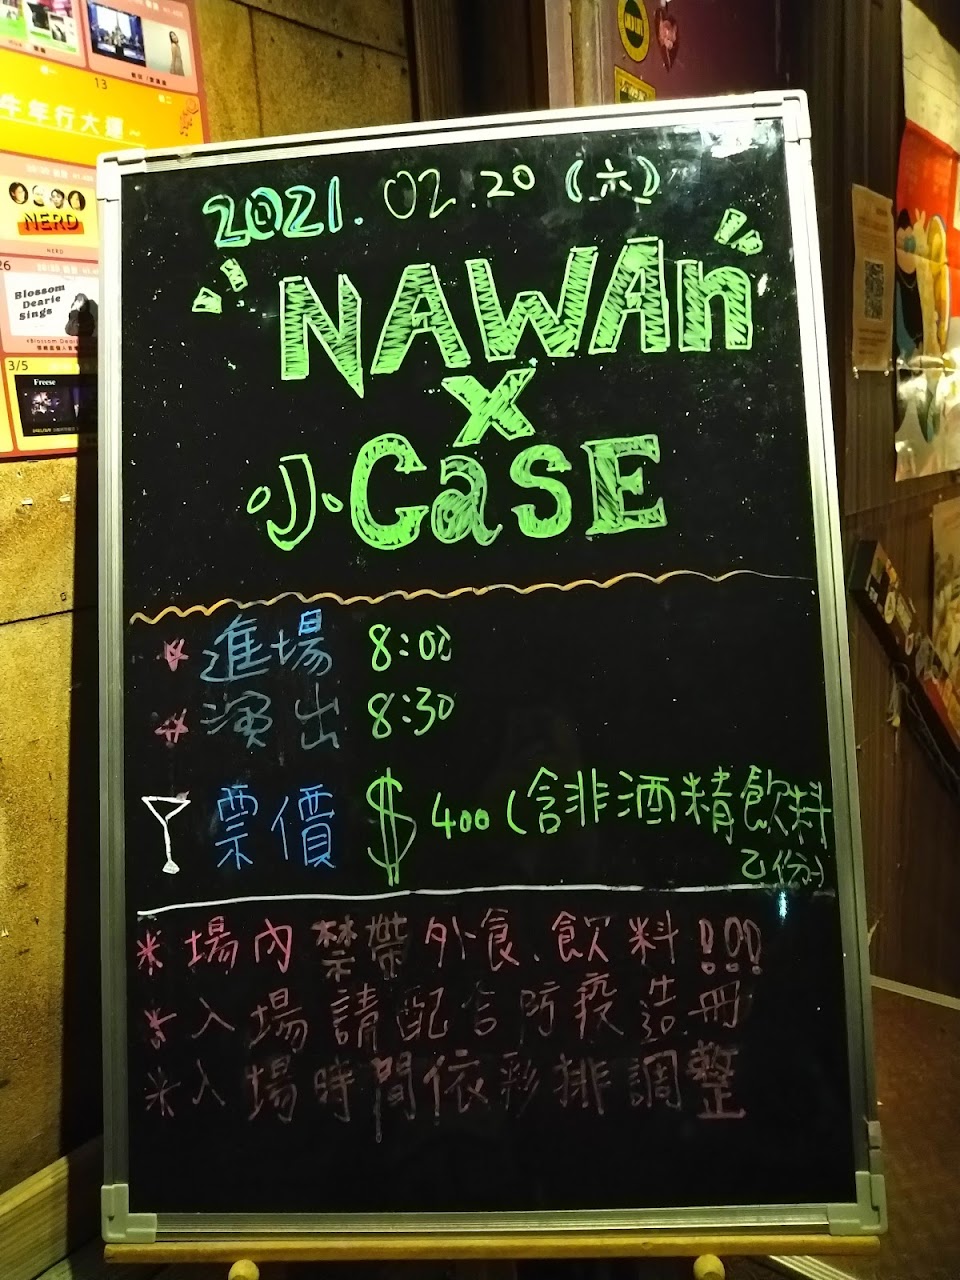 2021.02.20 (六)
NAWAn
x
小CaSE
進場 8:00
演出 8:30
票價 $400 (含非酒精飲料
乙份)
※場內禁帶外食、飲料!!!
※入場請配合防疫造冊
※入場時間依彩排調整
13
牛年行大運~
NERD
NERD
26
Blossom
Dearie
Sings
3/5
Freese